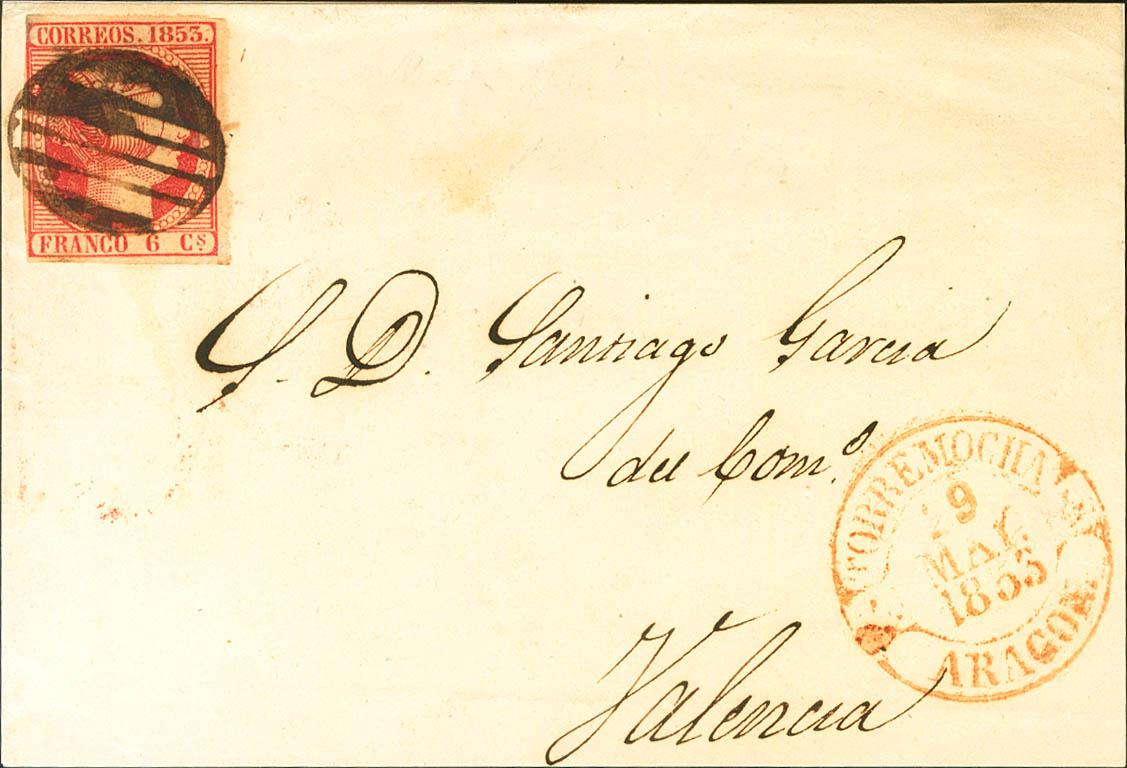 CORREOS. 1853.
FRANCO 6 Cs
S. D. Santiago Garcia
del Comº.
Valencia
TORREMOCHA
9
MAY.
1853
ARAGON.